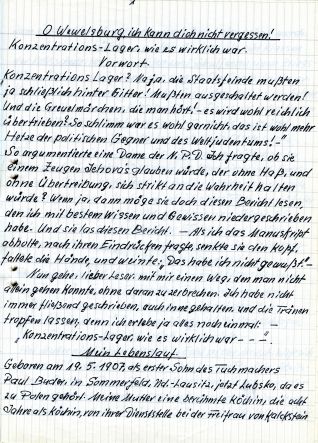 1
O Wewelsburg ich kann dich nicht vergessen!
Konzentrations-Lager, wie es wirklich war.
Vorwort
Konzentrations Lager? Na ja, die Staatsfeinde mußten
ja schließlich hinter Gitter! Mußten ausgeschaltet werden!
Und die Greuelmärchen, die man hört! - es wird wohl reichlich
übertrieben? So schlimm war es wohl garnicht, das ist wohl mehr
Hetze der politischen Gegner und des Weltjudentums! -"
So argumentierte eine Dame der N.P.D. Ich fragte, ob sie
einem Zeugen Jehovas glauben würde, der ohne Haß, und
ohne Übertreibung, sich strikt an die Wahrheit halten
würde? Wenn ja, dann möge sie doch diesen Bericht lesen,
den ich mit bestem Wissen und Gewissen niedergeschrieben
habe. Und sie las diesen Bericht. - Als ich das Manuskript
abholte, nach ihren Eindrücken fragte, senkte sie den Kopf,
faltete die Hände, und weinte: „Das habe ich nicht gewußt!"-
Nun gehe, lieber Leser, mit mir einen Weg, den man nicht
allein gehen konnte, ohne daran zu zerbrechen. Ich habe nicht
immer fließend geschrieben, auch innegehalten, und die Tränen
tropfen lassen, denn ich erlebe ja alles noch einmal: -
„Konzentrations-Lager, wie es wirklich war - - - -"
Mein Lebenslauf
Geboren am 19. 5. 1907, als erster Sohn des Tuchmachers
Paul Buder, in Sommerfeld, Nd.-Lausitz, jetzt Lubsko, da es
zu Polen gehört. Meine Mutter eine berühmte Köchin, die acht
Jahre als Köchin, von ihrer Dienststelle bei der Freifrau von Kalckstein